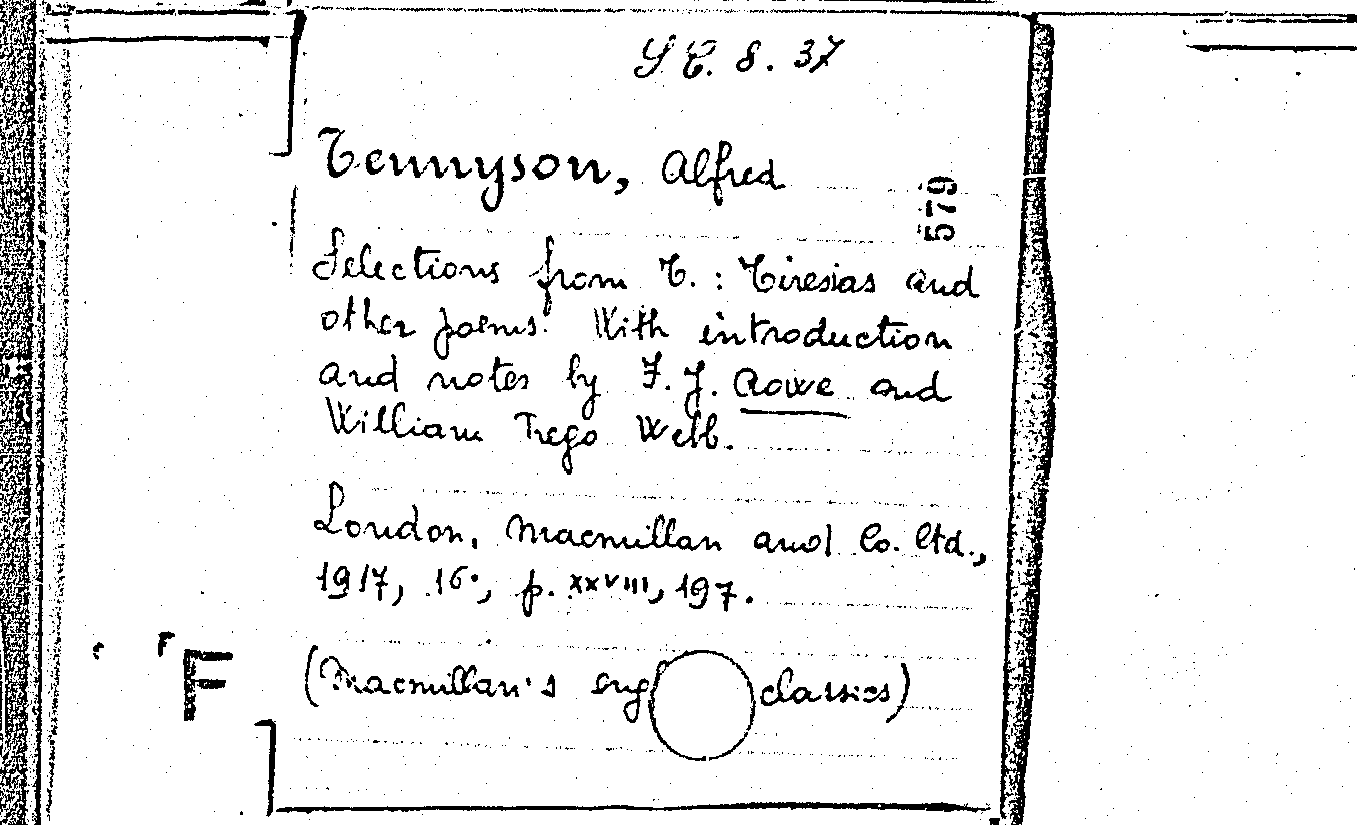 S C. 8. 37
Tennyson, Alfred
579
Selections from T. : Tiresias and
other poems. With introduction
and notes by F. J. Rowe and
William Trego Webb.
London, Macmillan and Co. Ltd.,
1917, 16°, p. XXVIII, 197.
(Macmillan's engl classics)
F